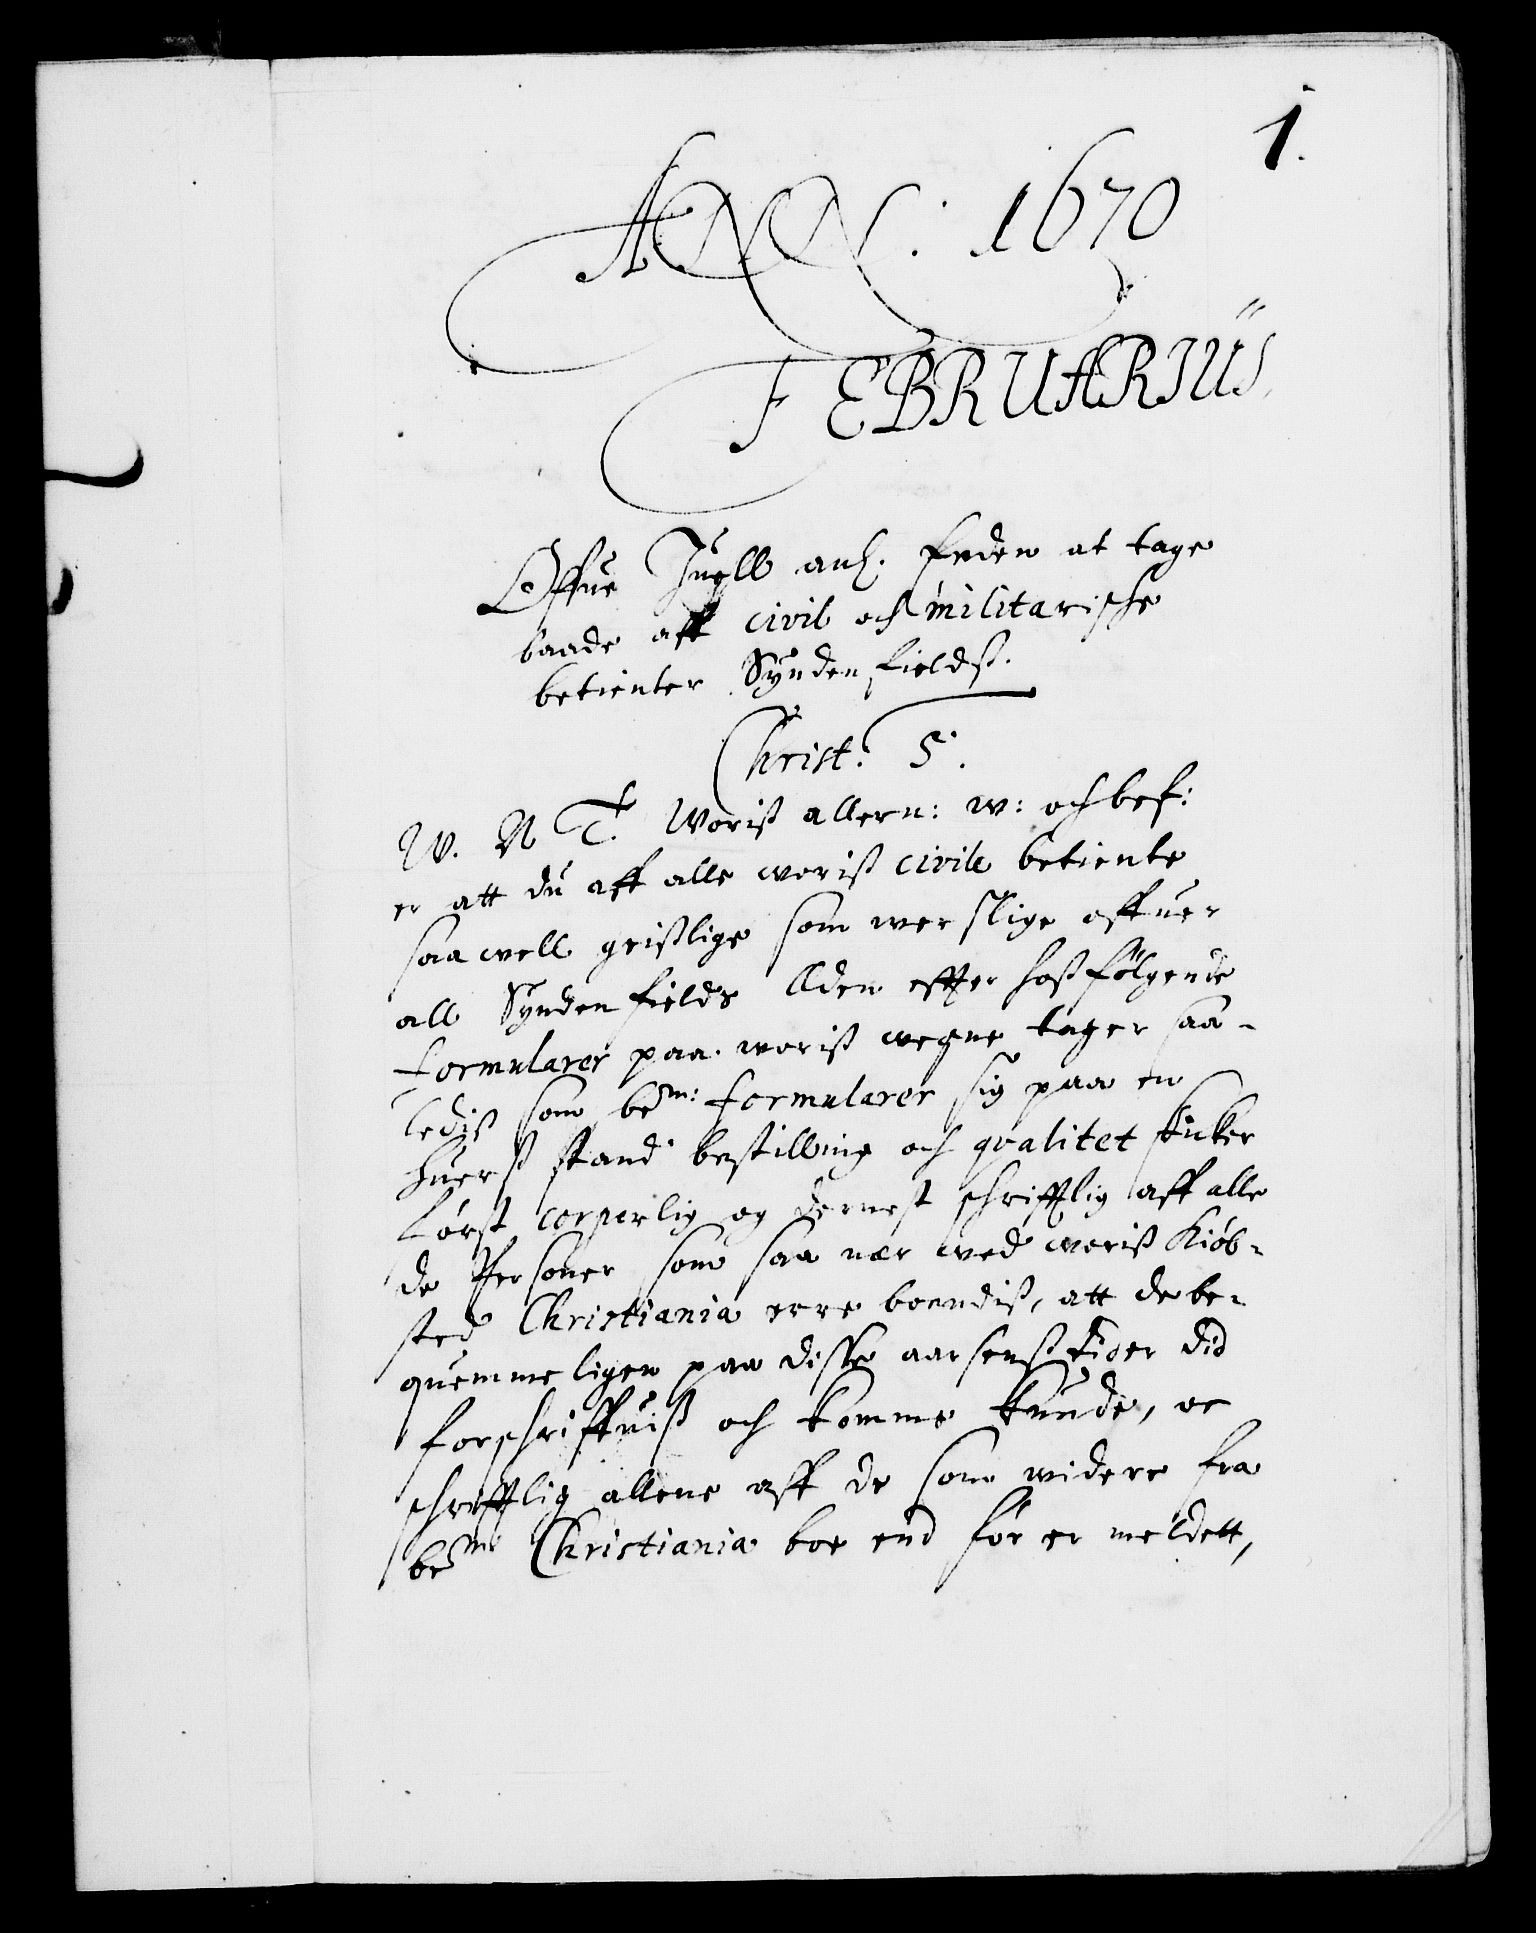 1.
ANN: 1670
FEBRUARIUS.
Offue Juell anl. Eeden at tage
baade aff civil och militarische
betienter Synden fieldß.
Christ: 5.
W. N T. Woriß allern: w: och bef:
er att du aff alle woriß civile betiente
saa well geistlige som werslige offuer
all Synden fields Eden effter hoßfölgende
formularer paa woriß wegne tager saa-
ledis som bem: formularer sig paa en
huerß stand bestilling och qvalitet skicker
först corperlig og dernest schrifftlig aff alle
de Personer som saa nær wed woriß Kiöb-
sted Christiania erre boendiß, att de be-
quemmeligen paa disse aarsenß tider did
forschriffuiß och komme kunde, oc
schrifftlig allene aff de som widere fra
bem Christiania boe end för er meldett,